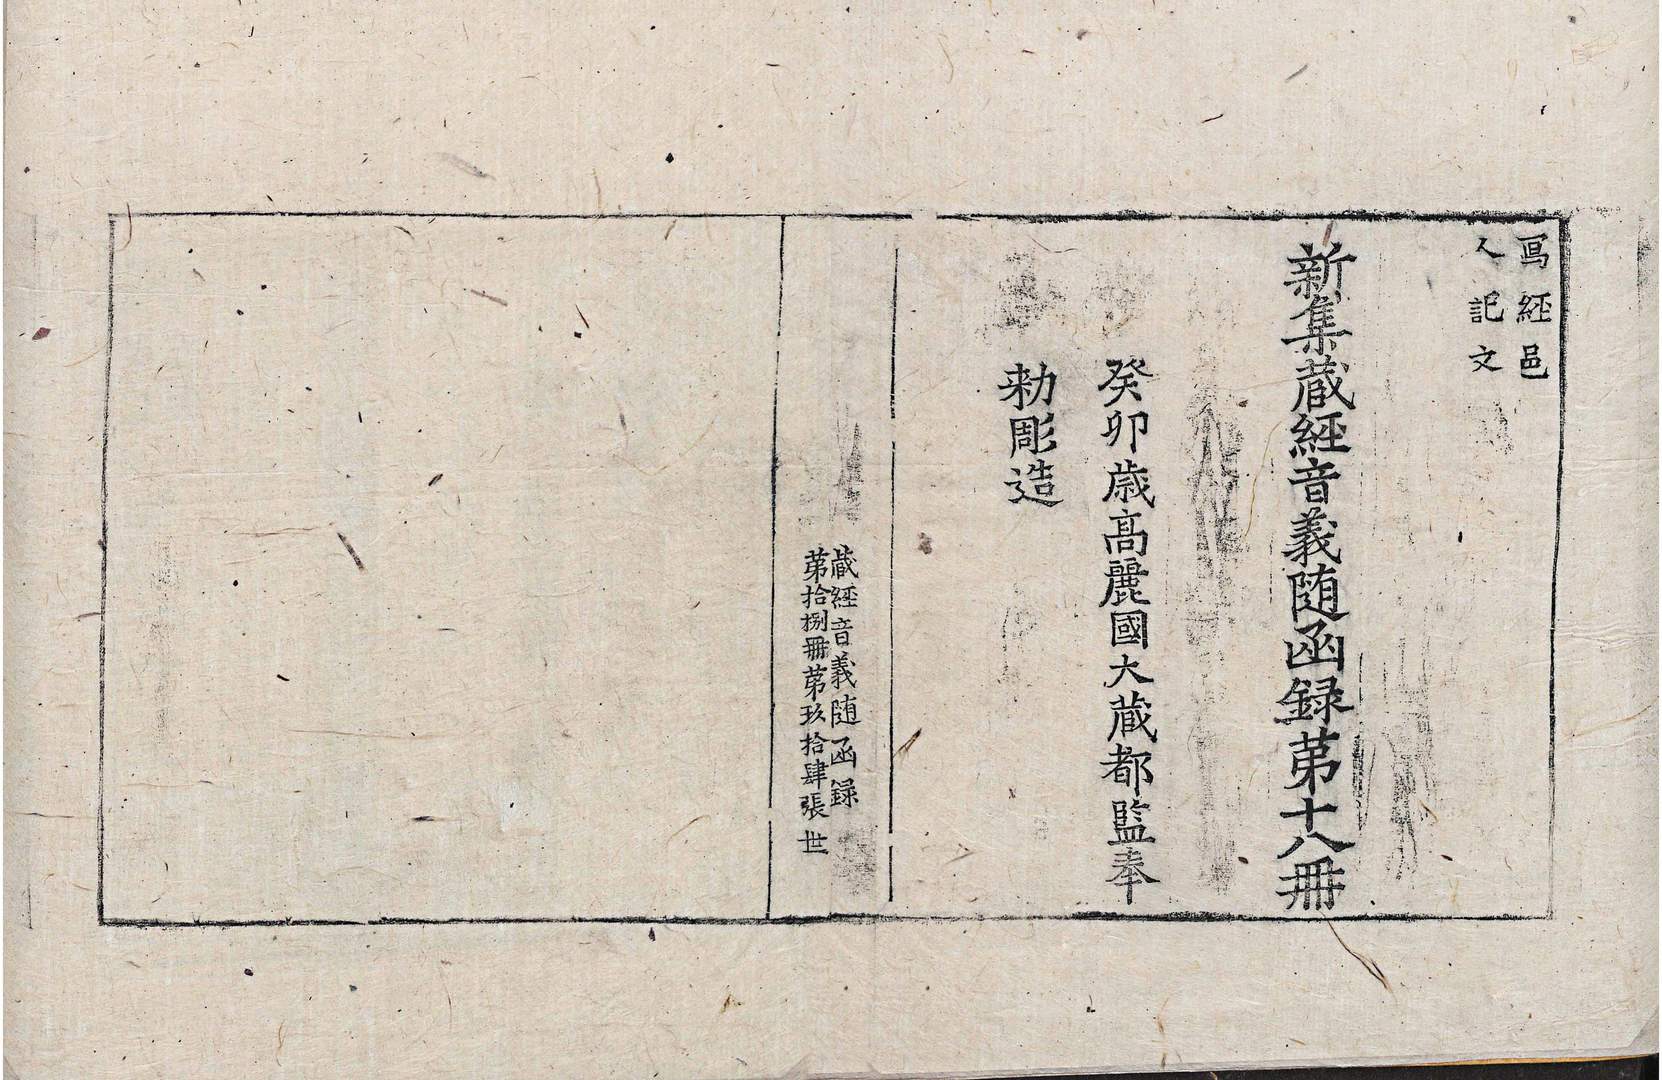 寫經邑
人記文
新集蔵經音義随函録第十八冊
癸卯歳高麗國大蔵都監奉
勅彫造
蔵經音義随函録
第拾捌冊第玖拾肆張世